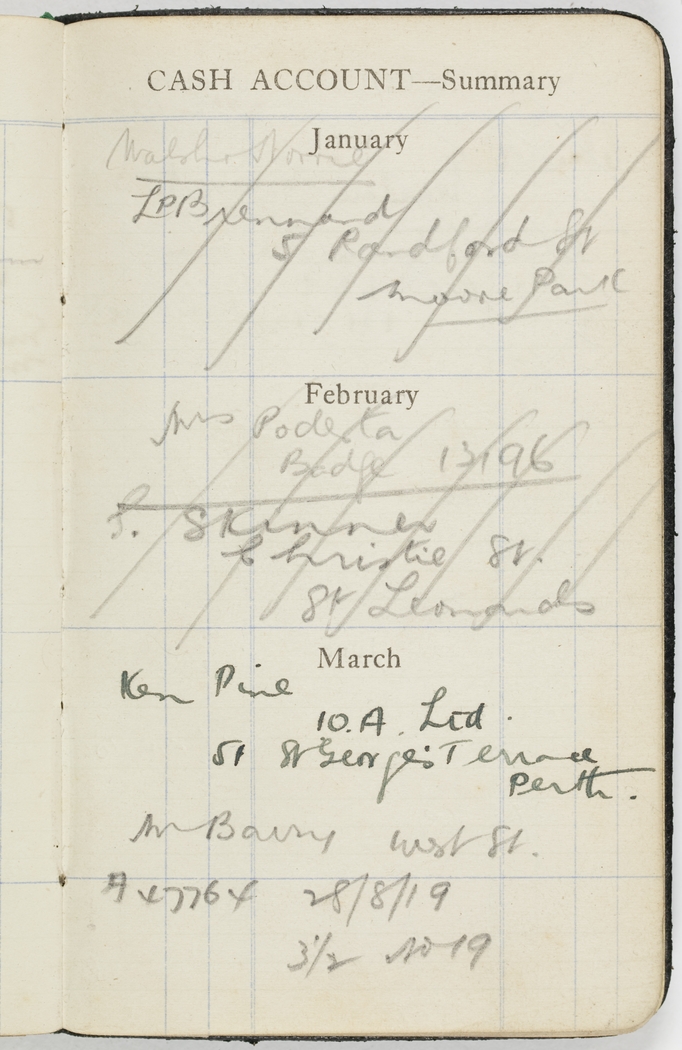 CASH ACCOUNT—Summary
January
L P Brennard
5 Randford St
Moore Park
February
Mrs Podesta
Badge 13196
J. Skinner
Christie St.
St Leonards
March
Ken Pine
10.A. Ltd.
51 St George's Terrace
Perth.
Mr Barry West St.
A 47764 28/8/19
3/2 No 19